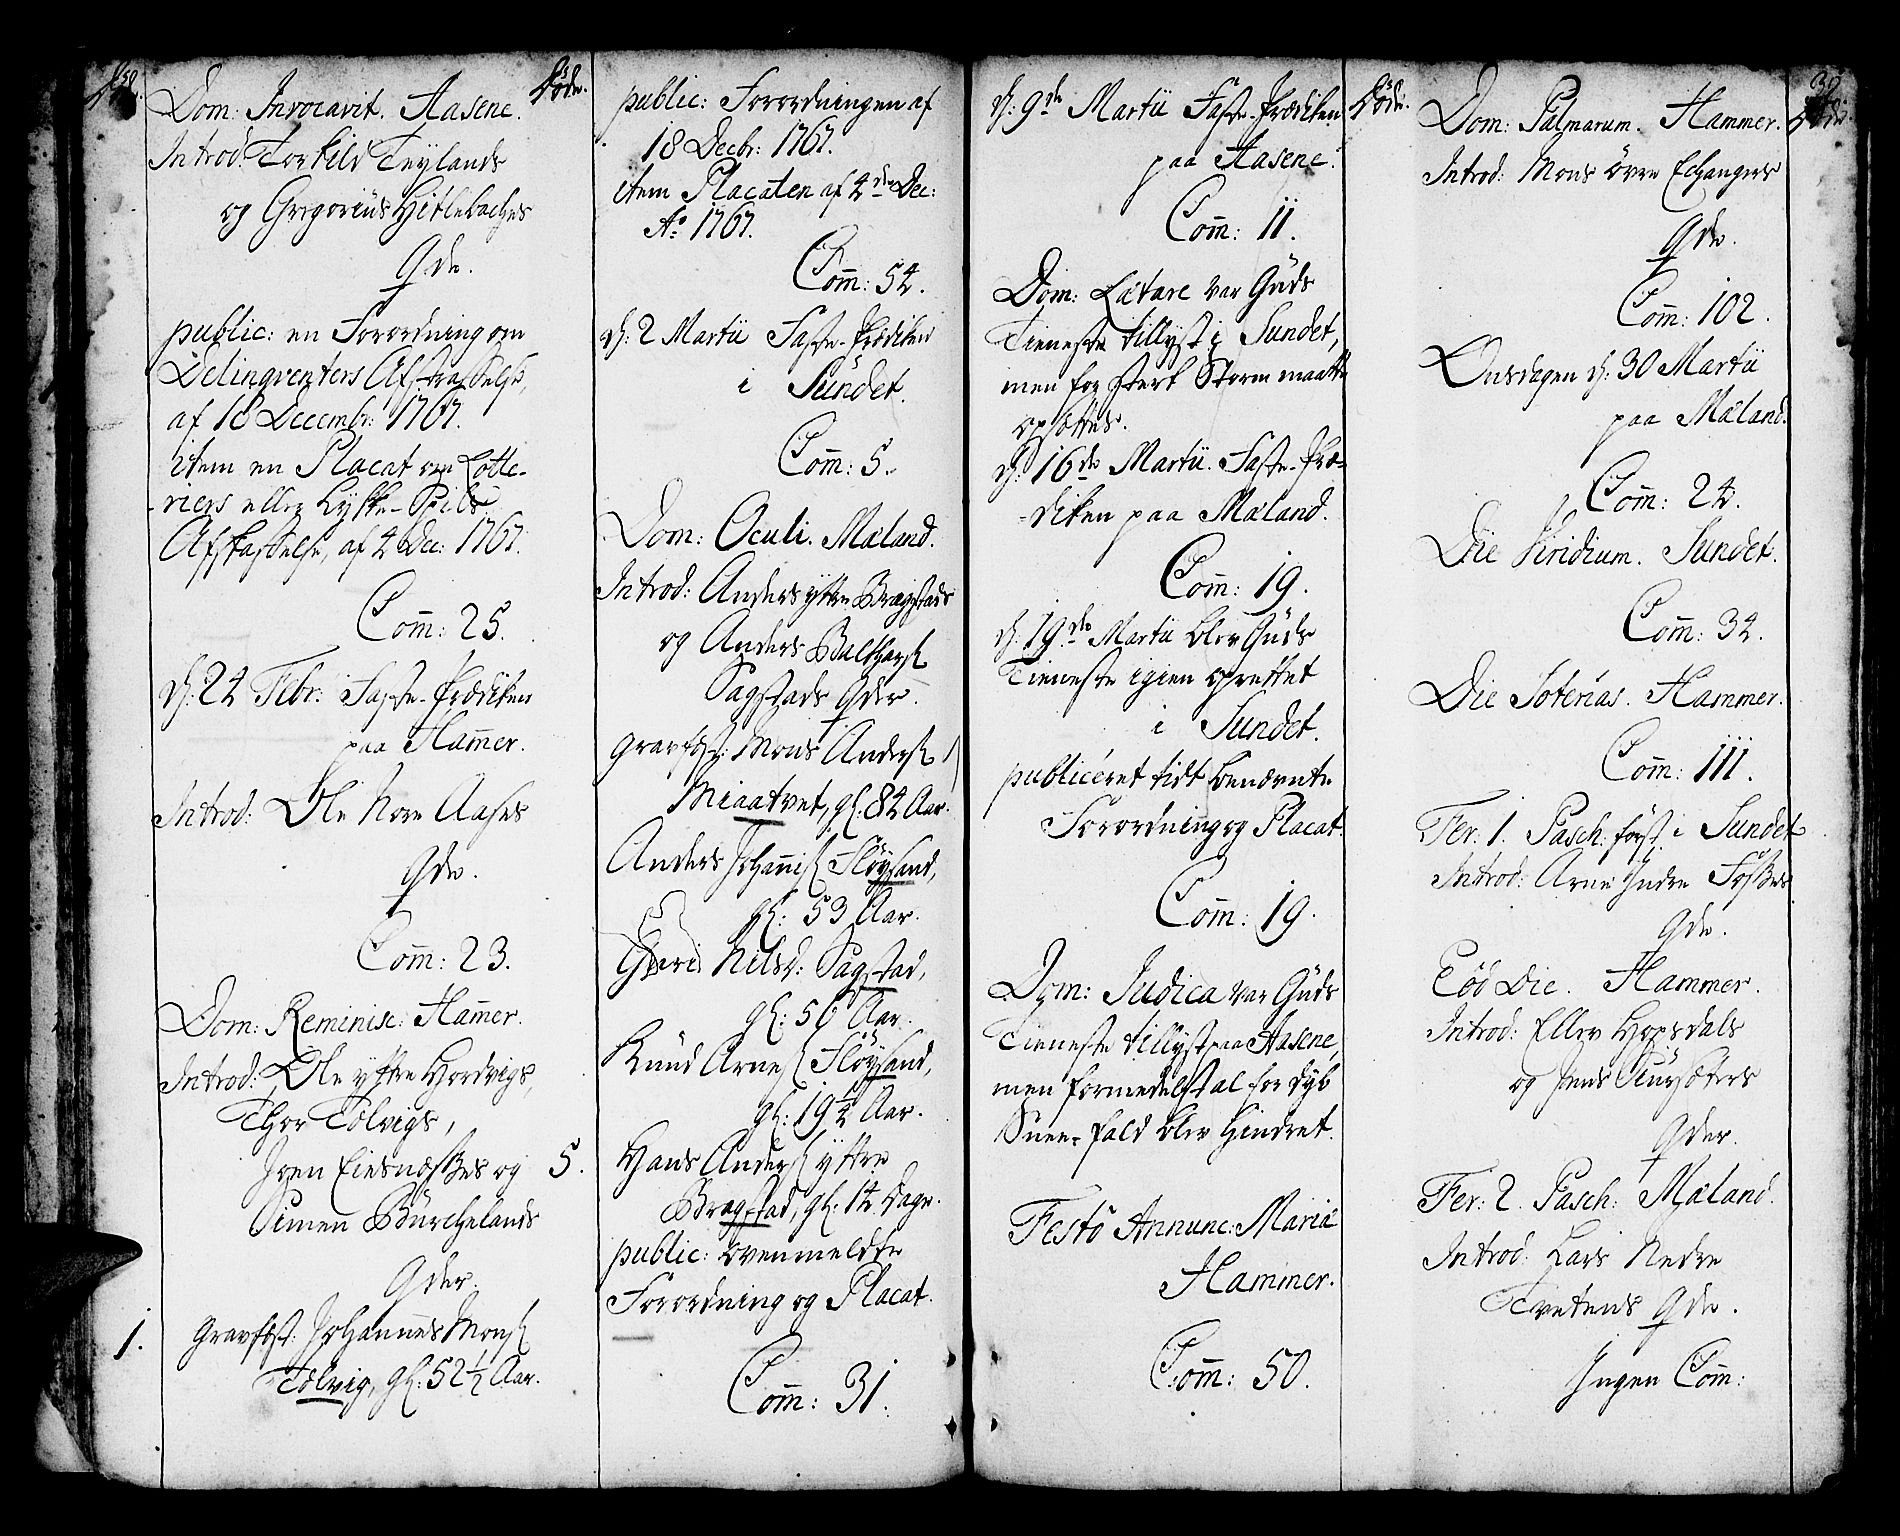 Død.
Dom: Invocavit. Aasene.
Introd: Torkild Teylands
og Gregorius Hitlebachs
Qde.
public: en Forordning om
Delinqventers Afstraffelse,
af 18 Decembr: 1767.
item en Placat om Lotte-
-riers eller Lykke-Spils
Afskaffelse, af 4 Dec: 1767.
Com̄: 25.
d: 24 Febr: Faste-Prædiken
paa Ham̄er.
Introd: Ole Nore Aases
Qde.
Com̄: 23.
Dom: Reminisc: Ham̄er.
Introd: Ole yttre Hordvigs,
Thor Tolvigs,
Joen Eiesnæsses og
Simen Burchelands
Qder.
1.
Gravfæst: Johan̄es Mons
Tolvig, gl: 52½ Aar.
Døde.
5.
public: Forordningen af
18 Decbr: 1767.
item Placaten af 4de Dec:
Ao 1767.
Com̄: 54.
d: 2 Martii Faste-Prædiken
i Sundet.
Com̄: 5.
Dom: Oculi. Mæland.
Introd: Anders yttre Bragstads
og Anders Balthars
Sagstads Qder.
Gravfæst: Mons Anders
Miaatvet, gl: 84 Aar.
Anders Johan̄is Fløysand,
gl: 53 Aar.
Nilsd: Sagstad,
gl: 56 Aar.
Knud Arnes Fløysand,
gl: 19½ Aar.
Hans Anders yttre
Bragstad, gl: 14 Dage.
public: ovenmeldte
Forordning og Placat.
Com̄: 31.
d: 9de Martii Faste-Prædiken
paa Aasene.
Com̄: 11.
Dom: Lætare var Guds
Tieneste tillyst i Sundet,
men for sterk Storm maatte
opsættes.
d: 16de Martii. Faste-Præ-
-diken paa Mæland.
Com̄: 19.
d: 19de Martii blev Guds
Tieneste igien oprettet
i Sundet.
publiceret tidt benævnte
Forordning og Placat.
Com̄: 19.
Dom: Judica var Guds
Tieneste tillyst paa Aasene,
men formedelst al for dyb
Snee-fald blev hindret.
Festo Annunc: Mariæ
Hammer.
Com̄: 50.
Døde.
Dom: Palmarum. Hammer.
Introd: Mons övre Echangers
Qde.
Com̄: 102.
Onsdagen d: 30 Martii
paa Mæland.
Com̄: 24.
Die Viridium. Sundet.
Com̄: 34.
Die Soterias. Hammer.
Com̄: 111.
Fer: 1. Pasch: först i Sundet
Introd: Arne Indre Fosses
Qde.
Eod Die. Hammer.
Introd: Ellev Hopsdals
og Jens
Qder.
Fer: 2. Pasch: Mæland.
Introd: Lars Nedre
Tvetens Qde.
Ingen Com̄:
Døde.